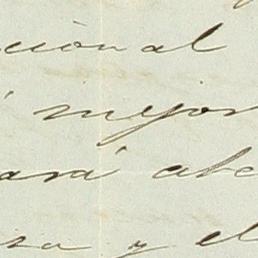 cional
mejor
ará abe
sa y el